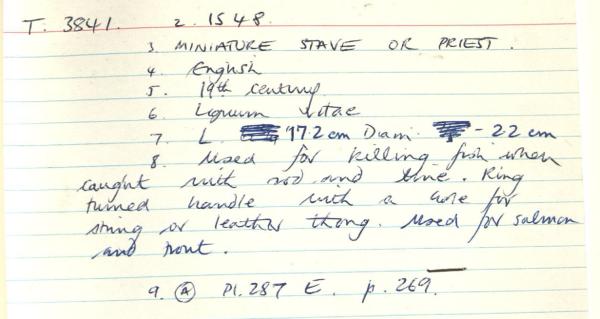 T. 3841. 2. 1548.
3. MINIATURE STAVE OR PRIEST.
4. English
5. 19th century
6. Lignum Vitae
7. L. 17.2 cm Diam. - 2.2 cm
8. Used for killing fish when
caught with rod and line. Ring
turned handle with a hole for
string or leather thong. Used for salmon
and trout.
9. A Pl. 287 E. p. 269.